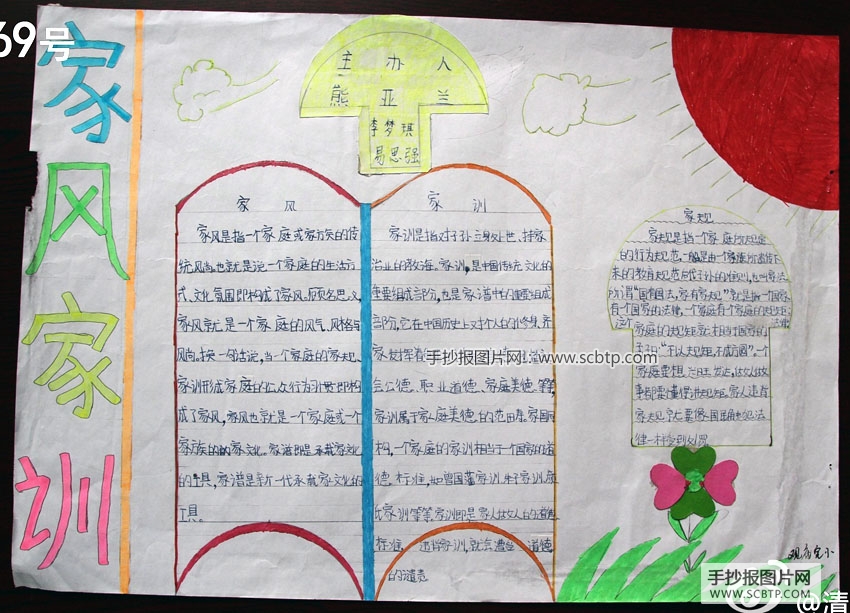 69号
家风家训
主办人
熊亚兰
李梦琪
易思强
家风
家风是指一个家庭或家族的传
统风尚,也就是说一个家庭的生活方
式、文化氛围即构成了家风。顾名思义,
家风就是一个家庭的风气、风格与
风尚。换一句话说,当一个家庭的家规、
家训形成家庭的公众行为习惯即构
成了家风,家风也就是一个家庭或一个
家族的的家文化。家谱即是承载家文化
的工具,家谱是新一代承载家文化的
工具。
家训
家训是指对子孙立身处世、持家
治业的教诲。家训,是中国传统文化的
重要组成部分,也是家谱中的重要组成
部分,它在中国历史上对个人的修身、齐
家发挥着
会公德、职业道德、家庭美德等,
家训属于家庭美德的范畴。家国同
构,一个家庭的家训相当于一个国家的道
德标准,如曾国藩家训,朱子家训,颜
氏家训等等,家训即是家人做人的道德
标准,违背家训,就会遭到道德
的谴责
家规
家规是指一个家庭所规定
的行为规范,一般是由一个家族所遗传下
来的教育规范后代子孙的准则,也叫家法
所谓“国有国法,家有家规”就是指一个国家
有一个国家的法律,一个家庭有个家庭的规矩;
这个
家庭的规矩就相当于国家的
法律
孟子曰“不以规矩,不成方圆”。一个
家庭要想兴旺发达,做人做
事都要懂得讲规矩。家人违背
家规就要像国里触犯法
律一样受到处罚
观音完小
手抄报图片网:www.scbtp.com
手抄报图片网
WWW.SCBTP.COM
@清